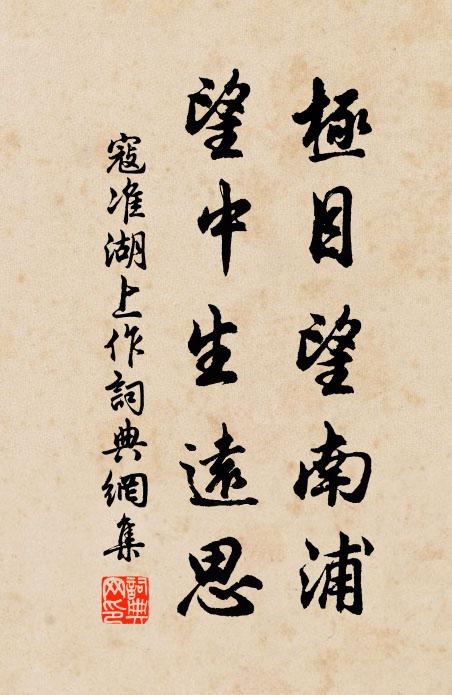 極目望南浦
望中生遠思
寇准湖上作詞典網集
詞典网印